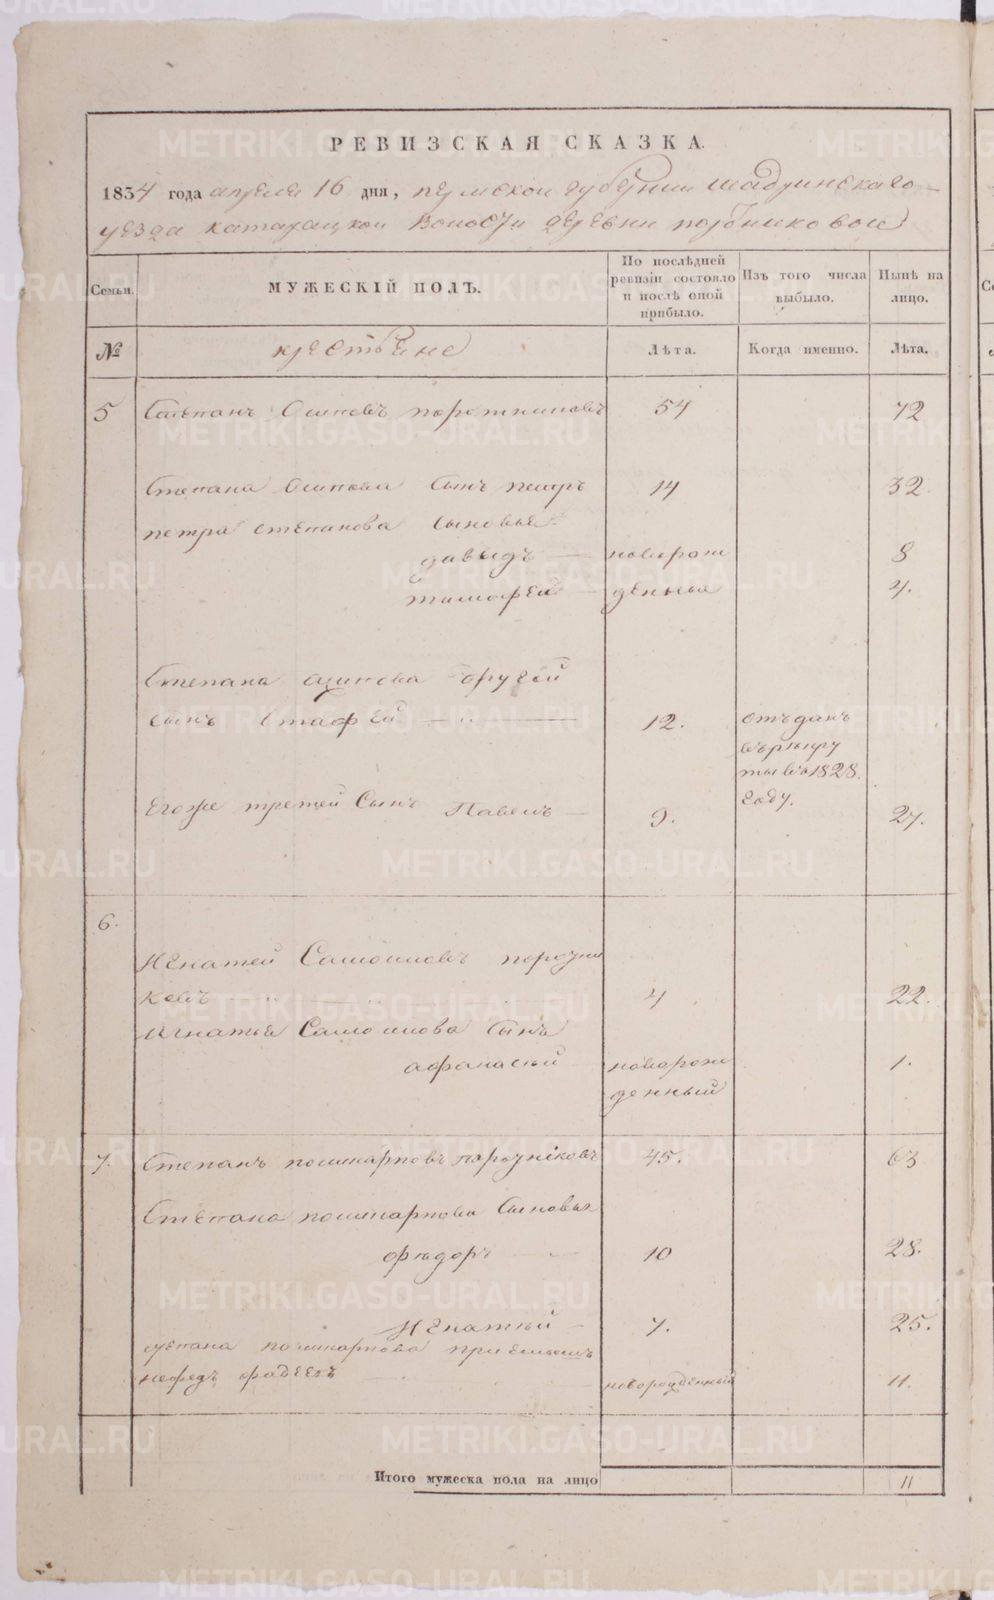 РЕВИЗСКАЯ СКАЗКА.
1834 года апреля 16 дня, пермской губернии шадринскаго
уезда катайской Волости деревни
Семьи. МУЖЕСКІЙ ПОЛЪ. По послѣдней ревизіи состояло и послѣ оной прибыло. Изъ того числа выбыло. Нынѣ на лицо.
№ крестьяне Лѣта. Когда именно. Лѣта.
5 Степанъ Осиповъ 54 72
Степана Осипова Сынъ петръ 14 32
петра степанова сыновья
давыдъ новорож 8
тимофей денныя 4.
Степана осипова другой
сынъ Стафей 12. отъданъ
в рекру
ты въ 1828.
году.
Егоже третей Сынъ Павелъ 9. 27.
6.
Игнатей Самоиловъ поротни
ковъ 4 22.
Игнатья Самоилова Сынъ
афанасий новорож 1.
денный
7. Степанъ поликарповъ поротниковъ 45. 63
Степана поликарпова Сыновья
фёдоръ 10 28.
Игнатий 7. 25.
степана поликарпова приемышъ
нефедъ фадеевъ новорожденный 11.
Итого мужеска пола на лицо 11
METRIKI.GASO-URAL.RU